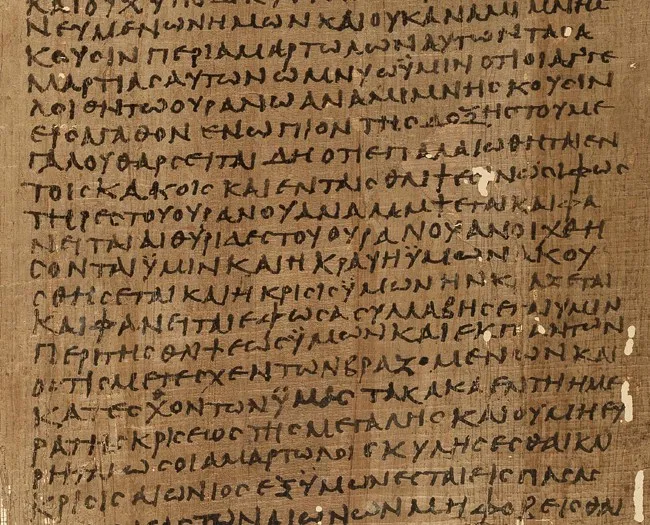 ΚΑΙΟΥΧΥΠΟΔ
ΝΕΥΜΕΝΩΝΗΜΩΝΚΑΙΟΥΚΑΝΑΜΙΜΝΗϹ
ΚΟΥϹΙΝΠΕΡΙΑΜΑΡΤΩΛΩΝΑΥΤΩΝΤΑϹΑ
ΜΑΡΤΙΑϹΑΥΤΩΝΩΜΝΥΩΫΜΙΝΟΤΙΟΙΑΓΓΕ
ΛΟΙΕΝΤΩΟΥΡΑΝΩΑΝΑΜΙΜΝΗϹΚΟΥϹΙΝ
ΕΙϹΑΓΑΘΟΝΕΝΩΠΙΟΝΤΗϹΔΟΞΗϹΤΟΥΜΕ
ΓΑΛΟΥΘΑΡϹΕΙΤΑΙΔΗΟΤΙΕΠΑΛΑΙΩΘΗΤΑΙΕΝ
ΤΟΙϹΚΑΚΟΙϹΚΑΙΕΝΤΑΙϹΘΛΙΨΕϹΙΝΩϹΙΦΩϹ
ΤΗΡΕϹΤΟΥΟΥΡΑΝΟΥΑΝΑΛΑΜΨΕΤΑΙΚΑΙΦΑ
ΝΕΙΤΑΙΑΙΘΥΡΙΔΕϹΤΟΥΟΥΡΑΝΟΥΑΝΟΙΧΘΗ
ϹΟΝΤΑΙΫΜΙΝΚΑΙΗΚΡΑΥΓΗΫΜΩΝΑΚΟΥ
ϹΘΗϹΕΤΑΙΚΑΙΗΚΡΙϹΙϹΫΜΩΝΗΝΚΡΑΖΕΤΑΙ
ΚΑΙΦΑΝΕΙΤΑΙΕΦΩϹΑϹΥΛΛΑΒΗϹΕΤΑΙΥΜΙΝ
ΠΕΡΙΤΗϹΘΛΙΨΕΩϹΫΜΩΝΚΑΙΕΚΠΑΝΤΩΝ
ΟϹΤΙϹΜΕΤΕϹΧΕΝΤΩΝΒΡΑΖΟΜΕΝΩΝΚΑΙ
ΚΑΤΕϹΧΟΝΤΩΝΫΜΑϹΤΑΚΑΚΑΕΝΤΗΗΜΕ
ΡΑΤΗϹΚΡΙϹΕΙΟϹΤΗϹΜΕΓΑΛΗϹΚΑΙΟΥΜΗΕΥ
ΡΗΤΗΩϹΟΙΑΜΑΡΤΩΛΟΙϹΚΥΛΗϹΕϹΘΑΙΚΑΙ
ΚΡΙϹΙϹΑΙΩΝΙΟϹΕΞΫΜΩΝΕϹΤΑΙΕΙϹΠΑϹΑϹ
ΑϹΤΩΝΑΙΩΝΩΝΜΗΦΟΒΕΙϹΘΑΙ